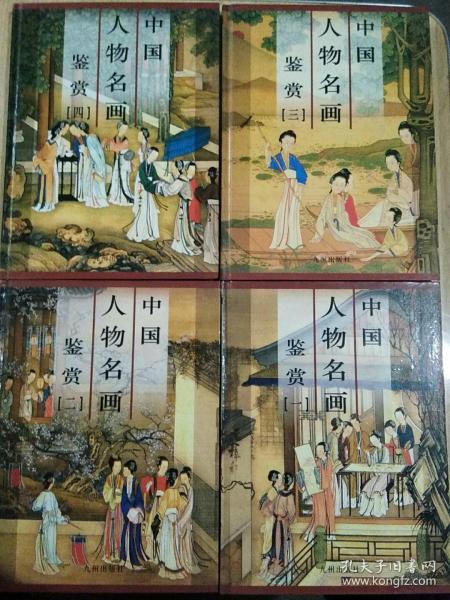 中国
人物名画
鉴赏
[四]
中国
人物名画
鉴赏
[三]
九洲出版社
中国
人物名画
鉴赏
[二]
九州出版社
中国
人物名画
鉴赏
[一]
九州出版社
孔夫子旧书网